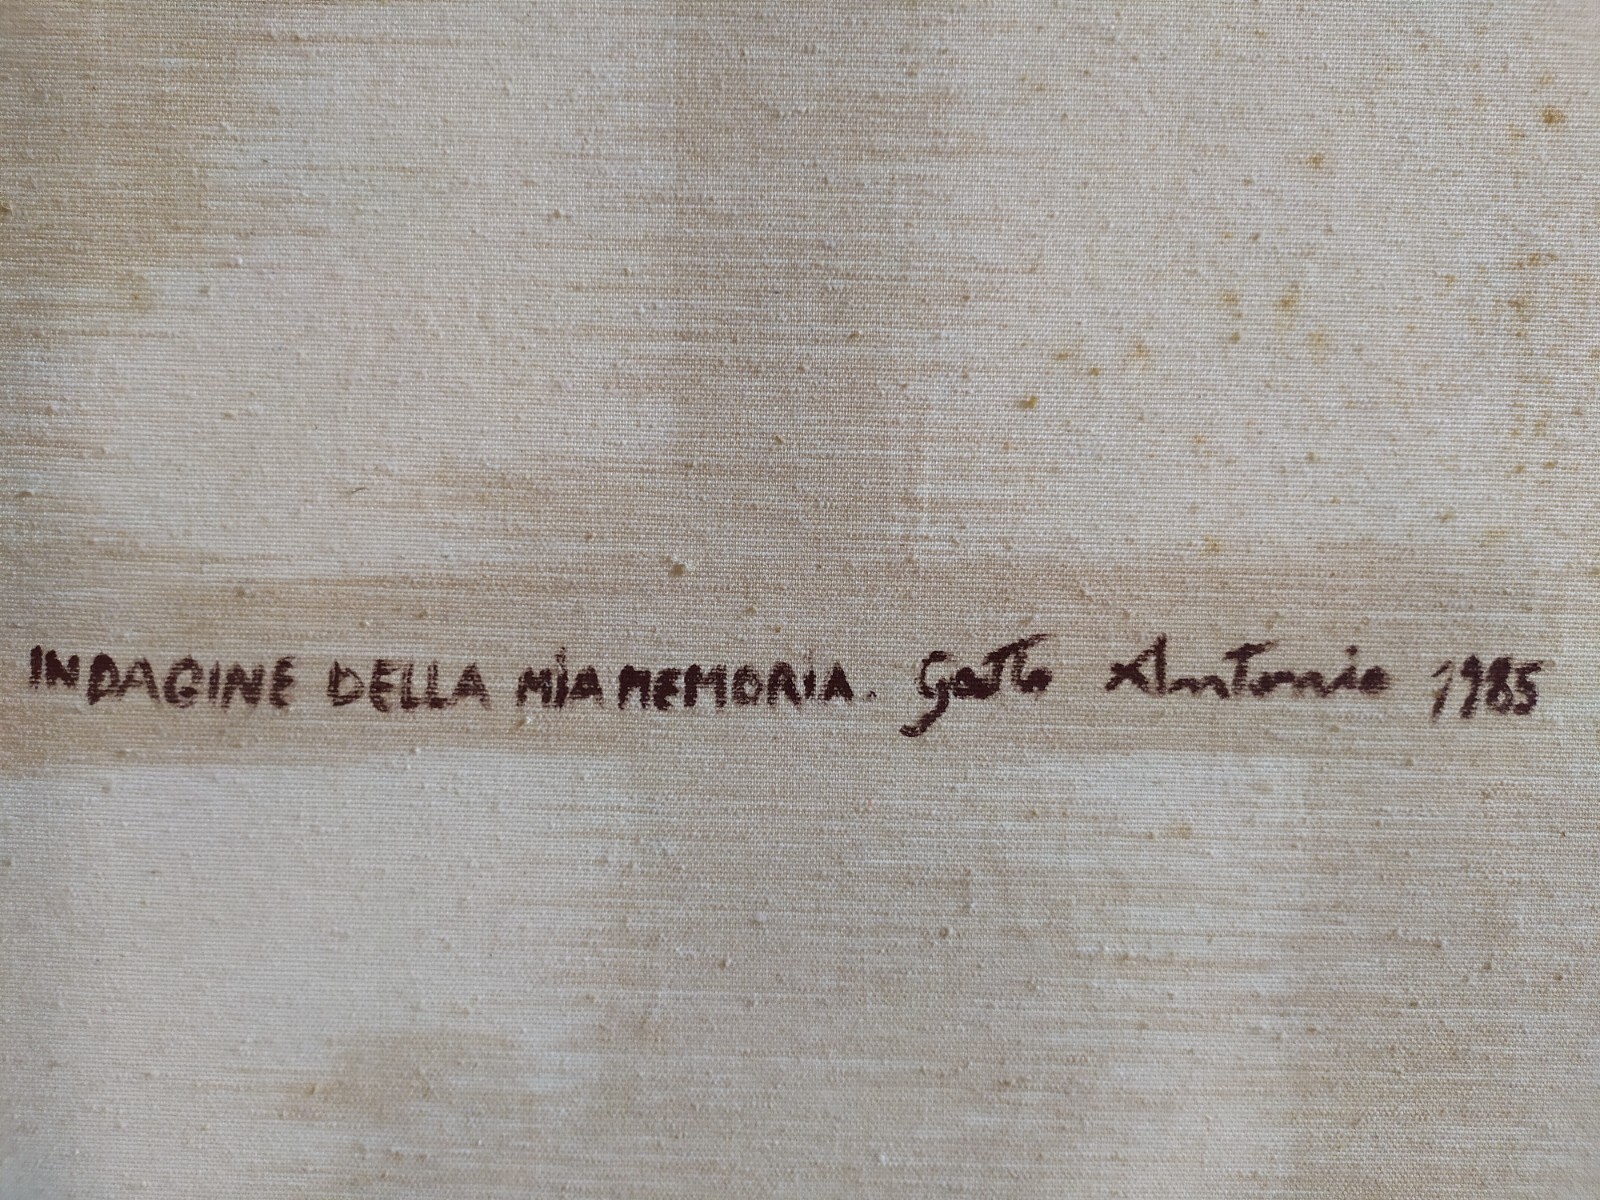 INDAGINE DELLA MIA MEMORIA. Gatto Antonio 1985